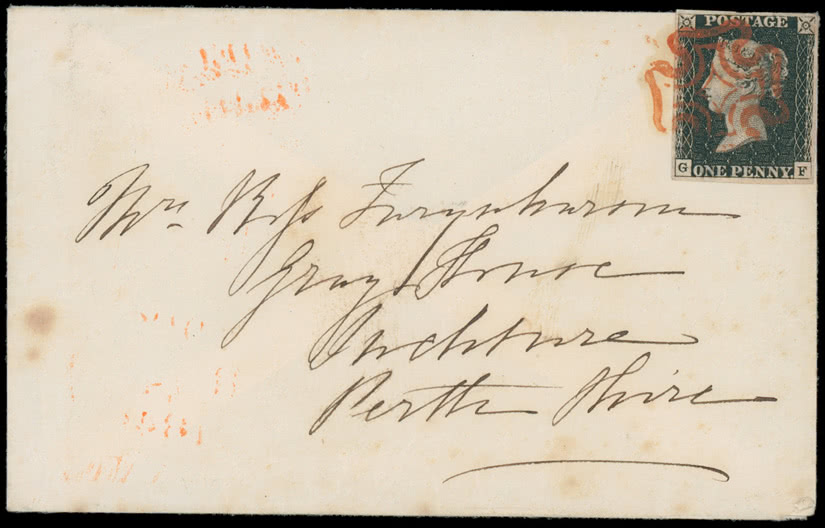 POSTAGE
G ONE PENNY F
Mrs Ross Farquharson
Grays House
Inchture
Perth Shire